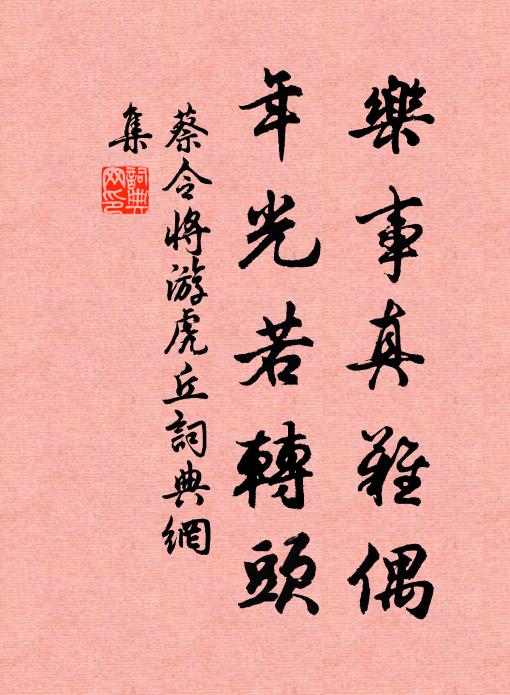 樂事真難偶
年光若轉頭
蔡令將游虎丘詞典網
集
詞典網印